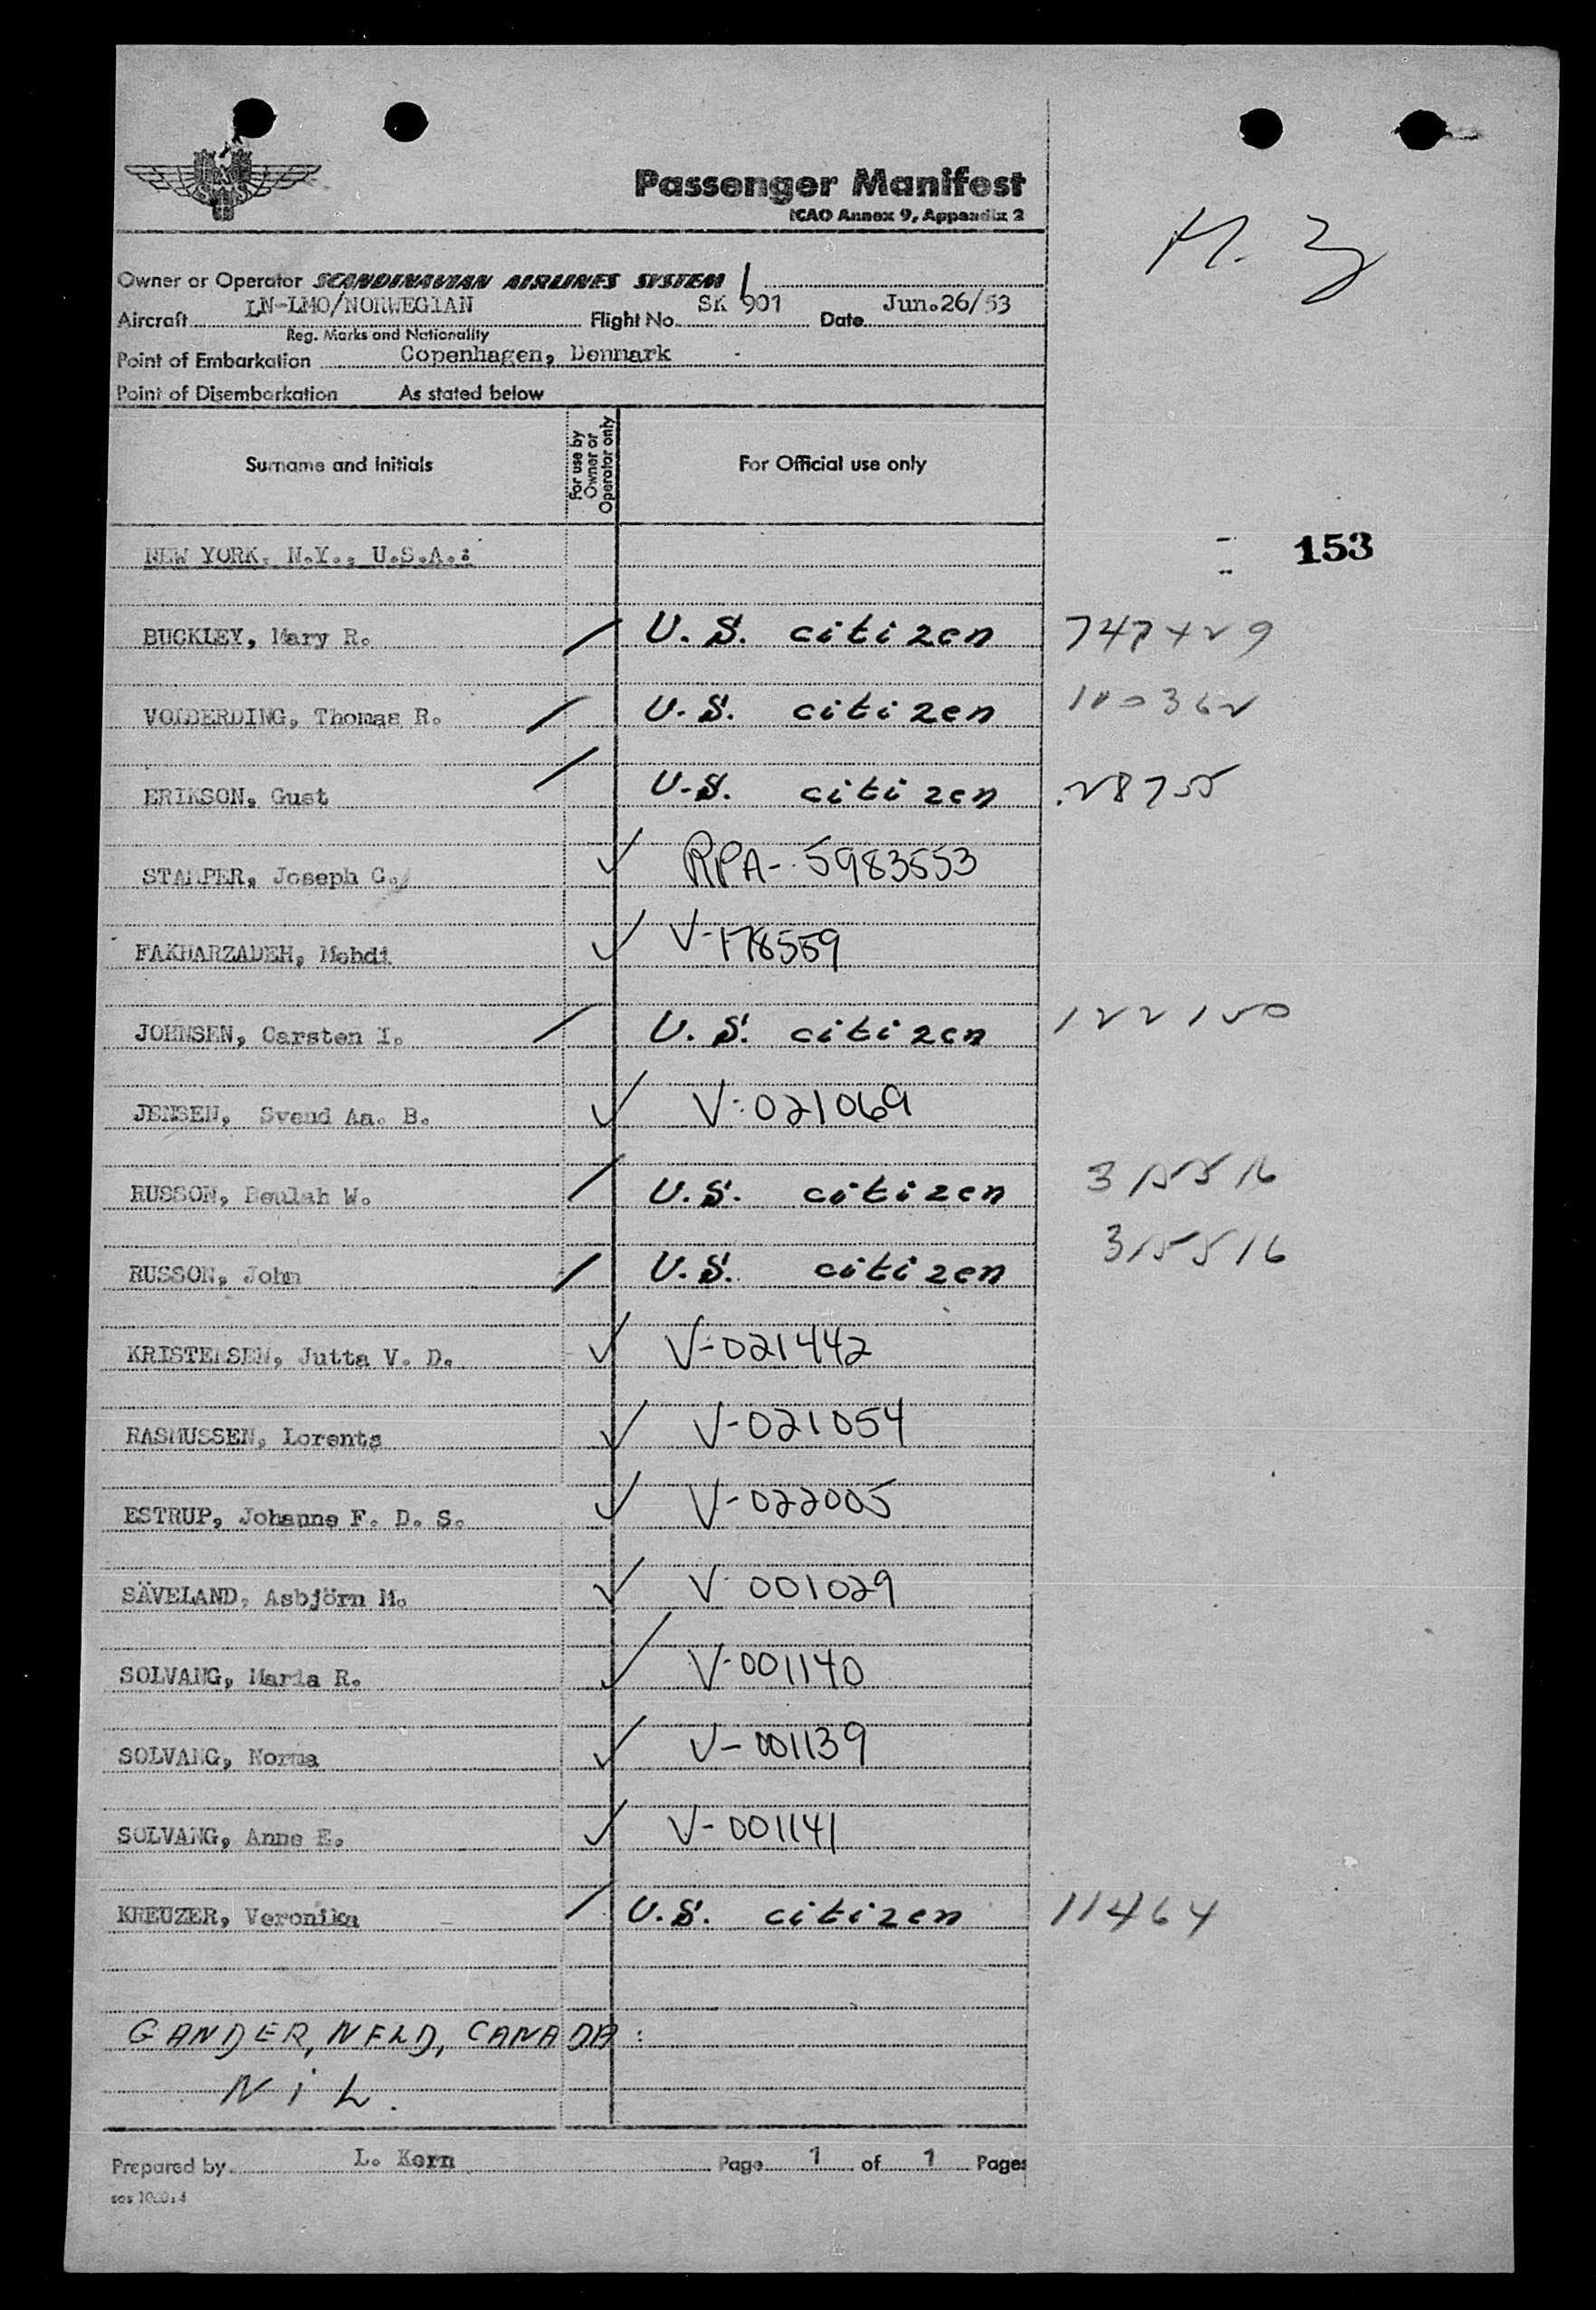 SAS
Passenger Manifest
ICAO Annex 9, Appendix 2
M. Z
Owner or Operator SCANDINAVIAN AIRLINES SYSTEM
Aircraft LN-LMO/NORWEGIAN Flight No. SK 901 Date Jun.26/53
Reg. Marks and Nationality
Point of Embarkation Copenhagen, Denmark
Point of Disembarkation As stated below
Surname and Initials For use by Owner or Operator only For Official use only
NEW YORK, N.Y., U.S.A.: 153
BUCKLEY, Mary R. / U.S. citizen 747429
VOLDERDING, Thomas R. / U.S. citizen
ERIKSON, Gust / U.S. citizen 28755
STAMPER, Joseph C. ✓ RPA-5983553
FAKHARZADEH, Mehdi ✓ V-178559
JOHNSEN, Carsten I. / U.S. citizen 122150
JENSEN, Svend Aa. B. ✓ V-021069
RUSSON, Beulah W. / U.S. citizen 315516
RUSSON, John / U.S. citizen 315516
KRISTENSEN, Jutta V. D. ✓ V-021442
RASMUSSEN, Lorents ✓ V-021054
ESTRUP, Johanne F. D. S. ✓ V-022005
SÄVELAND, Asbjörn M. ✓ V-001029
SOLVANG, Maria R. ✓ V-001140
SOLVANG, Norma ✓ V-001139
SOLVANG, Anne E. ✓ V-001141
KREUZER, Veronika / U.S. citizen 11464
GANDER, NFLD, CANADA:
NiL.
Prepared by L. Kern Page 1 of 1 Pages